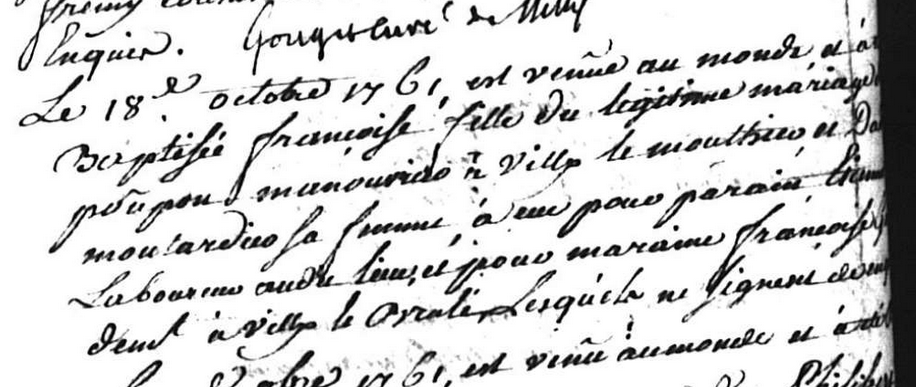 Enquier. Gouget curé de Milly
Le 18e. octobre 1761, est venüe au monde et a
Baptisée françoise fille du legitime mariage
poupon manouvrier à Villy le mouthier et
moutardier sa femme, à eu pour parain
Laboureur audit lieu, et pour maraine françoise
demt à Villy le Brulé Lesquels ne signent de
octobre 1761, est venüe au monde et à